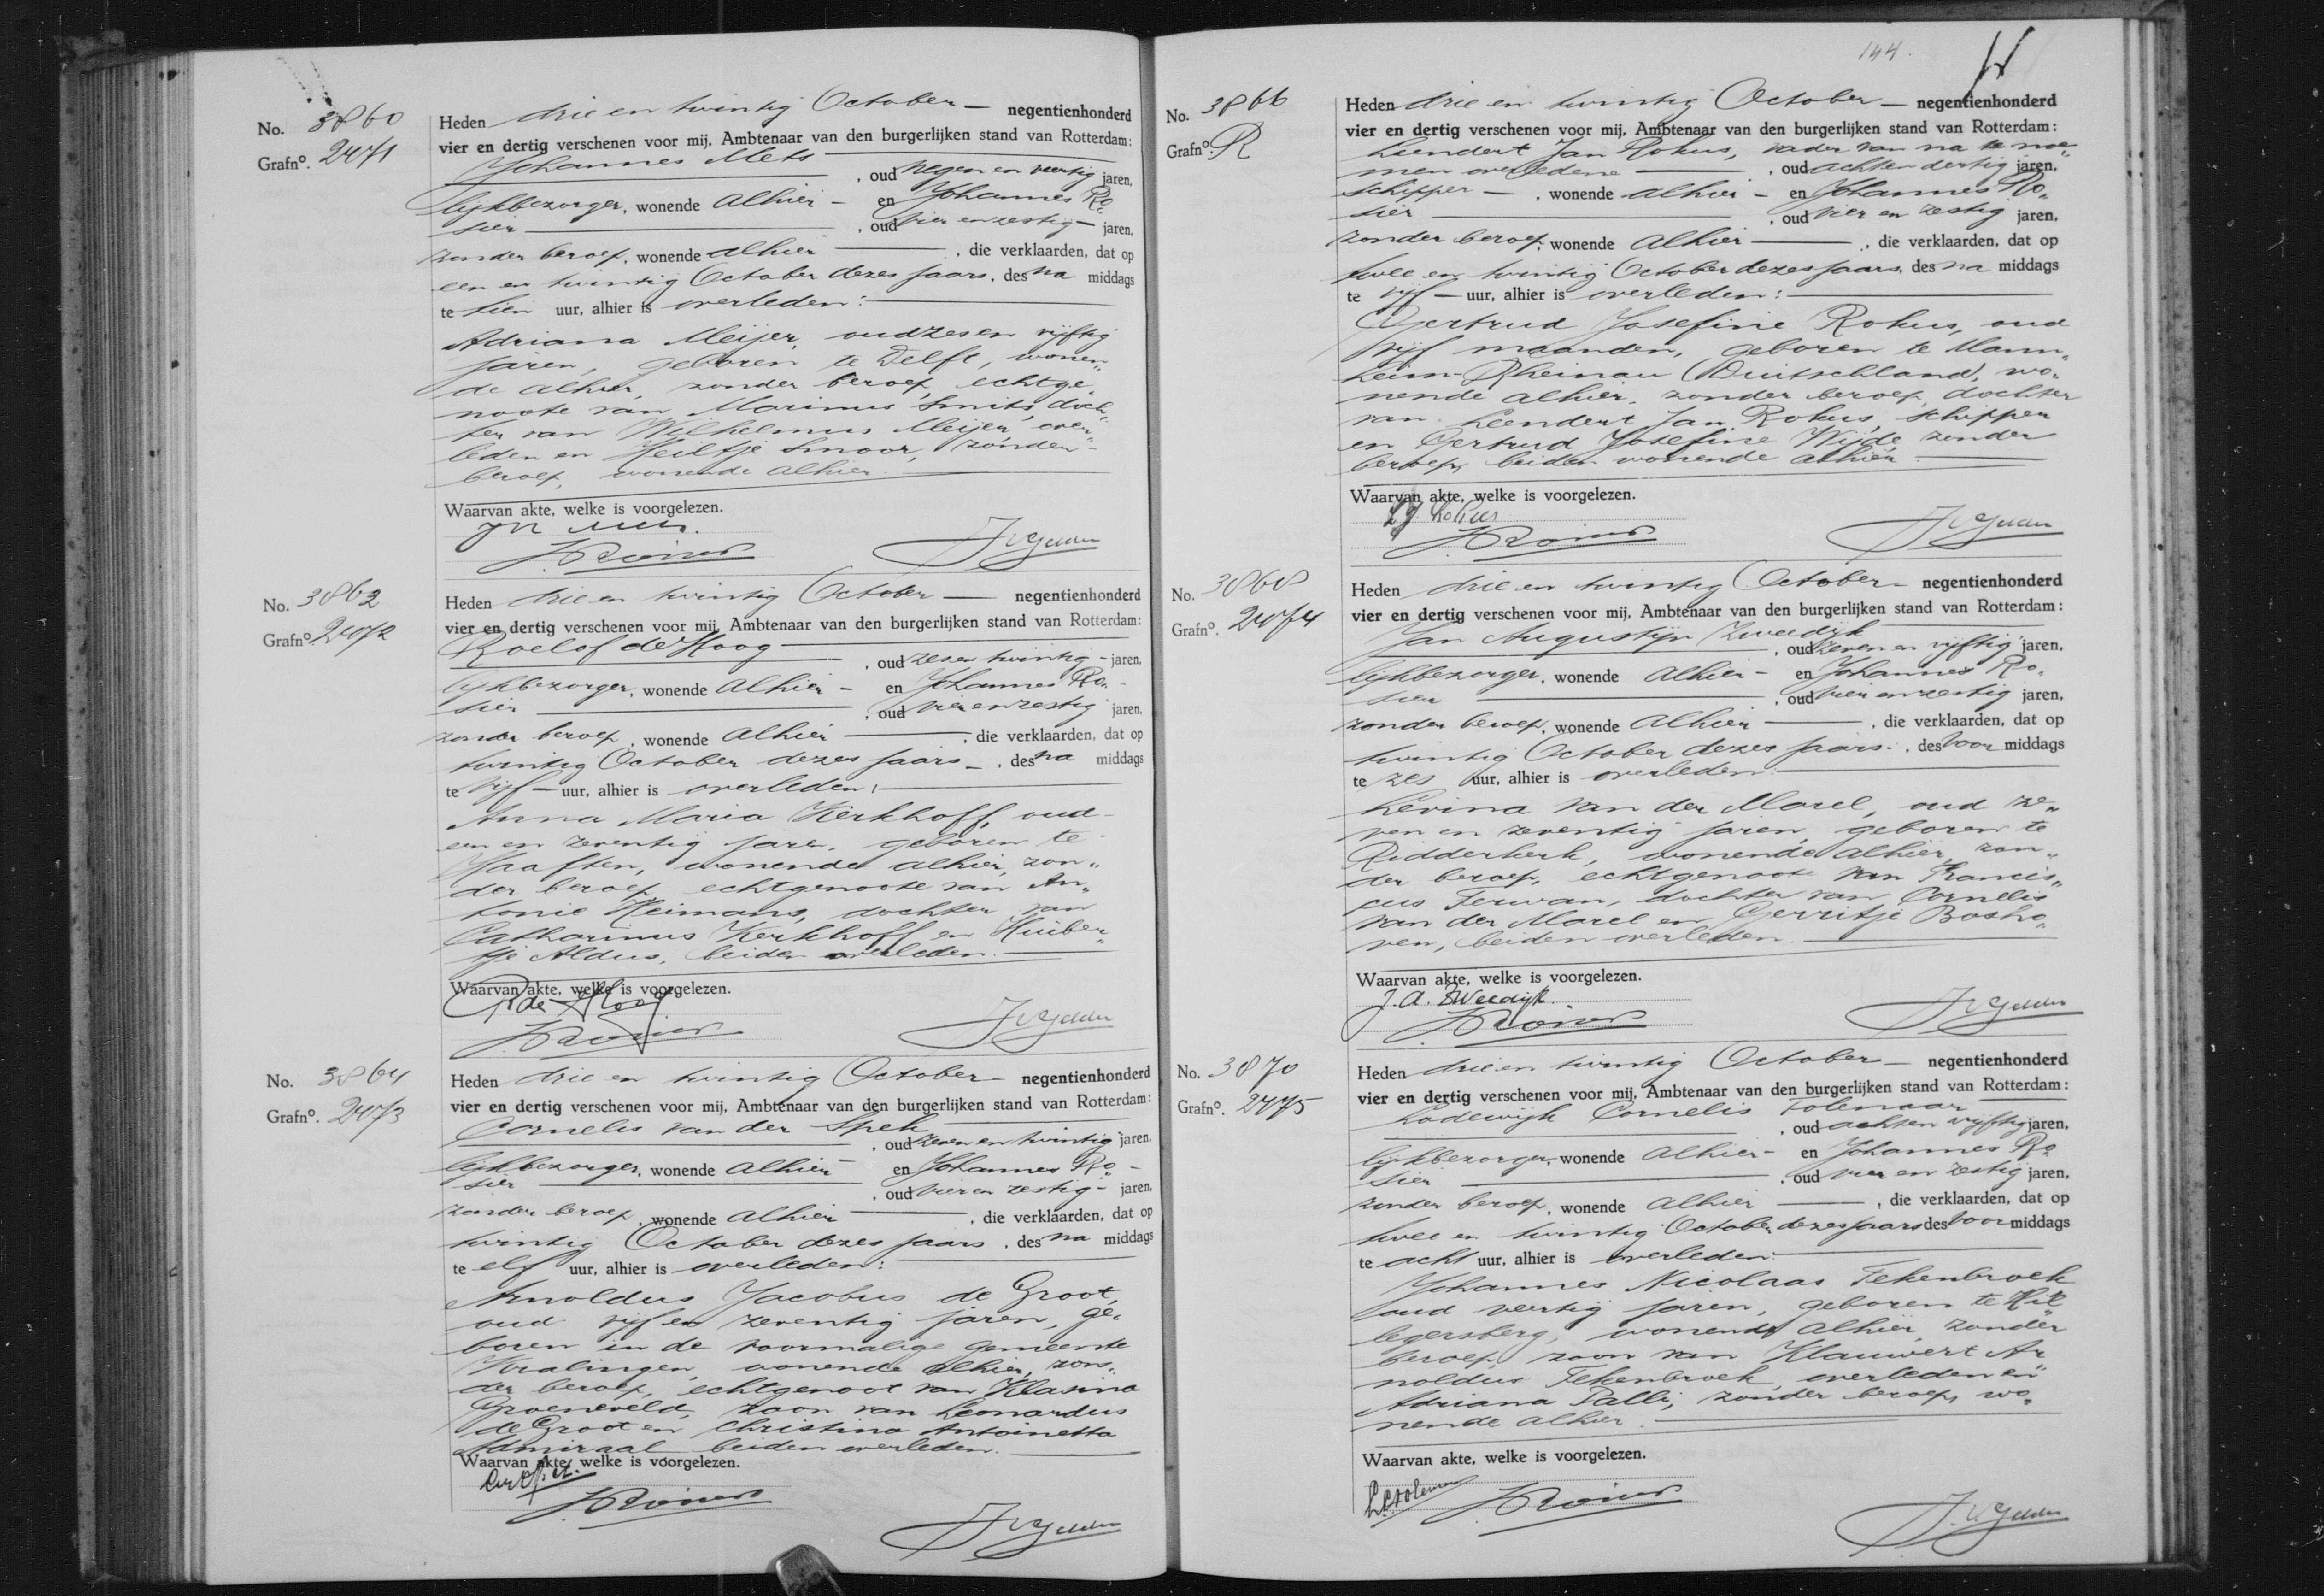 No. 3860
Grafno. 2471
Heden drie en twintig October — negentienhonderd
vier en dertig verschenen voor mij, Ambtenaar van den burgerlijken stand van Rotterdam:
Johannes Mets
, oud negen en veertig jaren,
lijkbezorger, wonende alhier – en Johannes Ro„
sier , oud vier en zestig – jaren,
zonder beroep, wonende alhier , die verklaarden, dat op
een en twintig October dezes jaars, des na middags
te tien uur, alhier is overleden:
Adriana Meijer, oud zes en vijftig
jaren, geboren te Delft, wonen„
de alhier, zonder beroep, echtge„
noote van Marinus Smits, doch„
ter van Wilhelmus Meijer, over„
leden en Heiltje Smoor, zonder
beroep, wonende alhier.
Waarvan akte, welke is voorgelezen.
JRosier JvGelder
No. 3862
Grafno. 2472
Heden drie en twintig October — negentienhonderd
vier en dertig verschenen voor mij, Ambtenaar van den burgerlijken stand van Rotterdam:
Roelof de Hoog
, oud zes en twintig – jaren,
lijkbezorger, wonende alhier – en Johannes Ro„
sier , oud vier en zestig jaren,
zonder beroep, wonende alhier , die verklaarden, dat op
twintig October dezes jaars –, des na middags
te vijf – uur, alhier is overleden:
Anna Maria Kerkhoff, oud
een en zeventig jare, geboren te
Haaften, wonende alhier, zon„
der beroep, echtgenoote van An„
tonie Heimans, dochter van
Catharinus Kerkhoff en Huiber„
tje Aldus, beiden overleden.
Waarvan akte, welke is voorgelezen.
R de Hoog
JRosier JvGelder
No. 3864
Grafno. 2473
Heden drie en twintig October – negentienhonderd
vier en dertig verschenen voor mij, Ambtenaar van den burgerlijken stand van Rotterdam:
Cornelis van der Spek
, oud zeven en twintig jaren,
lijkbezorger, wonende alhier – en Johannes Ro–
sier , oud vier en zestig – jaren,
zonder beroep, wonende alhier , die verklaarden, dat op
twintig October dezes jaars, des na middags
te elf uur, alhier is overleden:
Arnoldus Jacobus de Groot,
oud vijf en zeventig jaren, ge„
boren in de voormalige gemeente
Kralingen, wonende alhier, zon„
der beroep, echtgenoot van Klasina
Groeneveld, zoon van Leonardus
de Groot en Christina Antoinetta
Admiraal beiden overleden.
Waarvan akte, welke is voorgelezen.
JRosier
JvGelder
144.
No. 3866
Grafno. R
Heden drie en twintig October – negentienhonderd
vier en dertig verschenen voor mij, Ambtenaar van den burgerlijken stand van Rotterdam:
Leendert Jan Rokus, vader van na te noe„
men overledene , oud acht en dertig jaren,
schipper – , wonende alhier – en Johannes Ro„
sier , oud vier en zestig jaren,
zonder beroep, wonende alhier , die verklaarden, dat op
twee en twintig October dezes jaars, des na middags
te vijf – uur, alhier is overleden:
Gertrud Josefine Rokus, oud
vijf maanden, geboren te Mann„
heim-Rheinau (Duitschland), wo„
nende alhier, zonder beroep, dochter
van Leendert Jan Rokus, schipper
en Gertrud Josefine Wijde, zonder
beroep, beiden wonende alhier.
Waarvan akte, welke is voorgelezen.
L J Rokus
JRosier JvGelder
No. 3868
Grafno. 2474
Heden drie en twintig October – negentienhonderd
vier en dertig verschenen voor mij, Ambtenaar van den burgerlijken stand van Rotterdam:
Jan Augustijn Zweedijk
, oud zeven en vijftig jaren,
lijkbezorger, wonende alhier – en Johannes Ro„
sier , oud vier en zestig jaren,
zonder beroep, wonende alhier , die verklaarden, dat op
twintig October dezes jaars –, des voor middags
te zes uur, alhier is overleden:
Levina van der Marel, oud ze„
ven en zeventig jaren, geboren te
Ridderkerk, wonende alhier, zon„
der beroep, echtgenoote van Francis„
cus Ferwan, dochter van Cornelis
van der Marel en Gerritje Bosho„
ven, beiden overleden.
Waarvan akte, welke is voorgelezen.
J. A. Zweedijk
JRosier JvGelder
No. 3870
Grafno. 2475
Heden drie en twintig October – negentienhonderd
vier en dertig verschenen voor mij, Ambtenaar van den burgerlijken stand van Rotterdam:
Lodewijk Cornelis Tolenaar
, oud acht en vijftig jaren,
lijkbezorger, wonende alhier – en Johannes Ro„
sier , oud vier en zestig jaren,
zonder beroep, wonende alhier , die verklaarden, dat op
twee en twintig October dezes jaars des voor middags
te acht uur, alhier is overleden:
Johannes Nicolaas Tekenbroek
oud veertig jaren, geboren te Hil„
legersberg, wonende alhier, zonder
beroep, zoon van Klauwert Ar„
noldus Tekenbroek, overleden en
Adriana Palli, zonder beroep, wo„
nende alhier.
Waarvan akte, welke is voorgelezen.
JRosier
J.v.Gelder